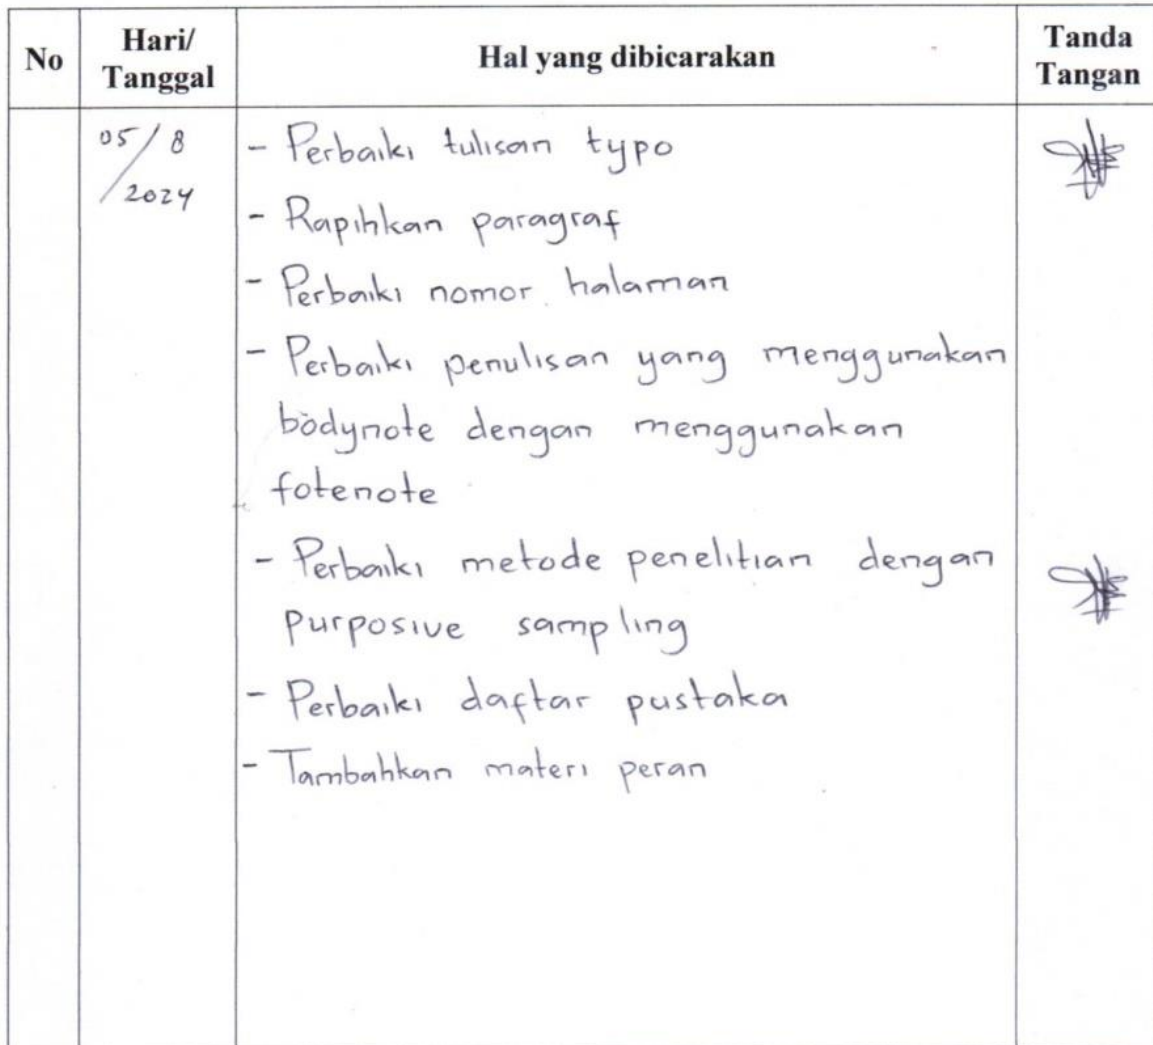 No
Hari/
Tanggal
Hal yang dibicarakan
Tanda
Tangan
05/8
/2024
- Perbaiki tulisan typo
- Rapihkan paragraf
- Perbaiki nomor halaman
- Perbaiki penulisan yang menggunakan
bodynote dengan menggunakan
fotenote
- Perbaiki metode penelitian dengan
purposive sampling
- Perbaiki daftar pustaka
- Tambahkan materi peran